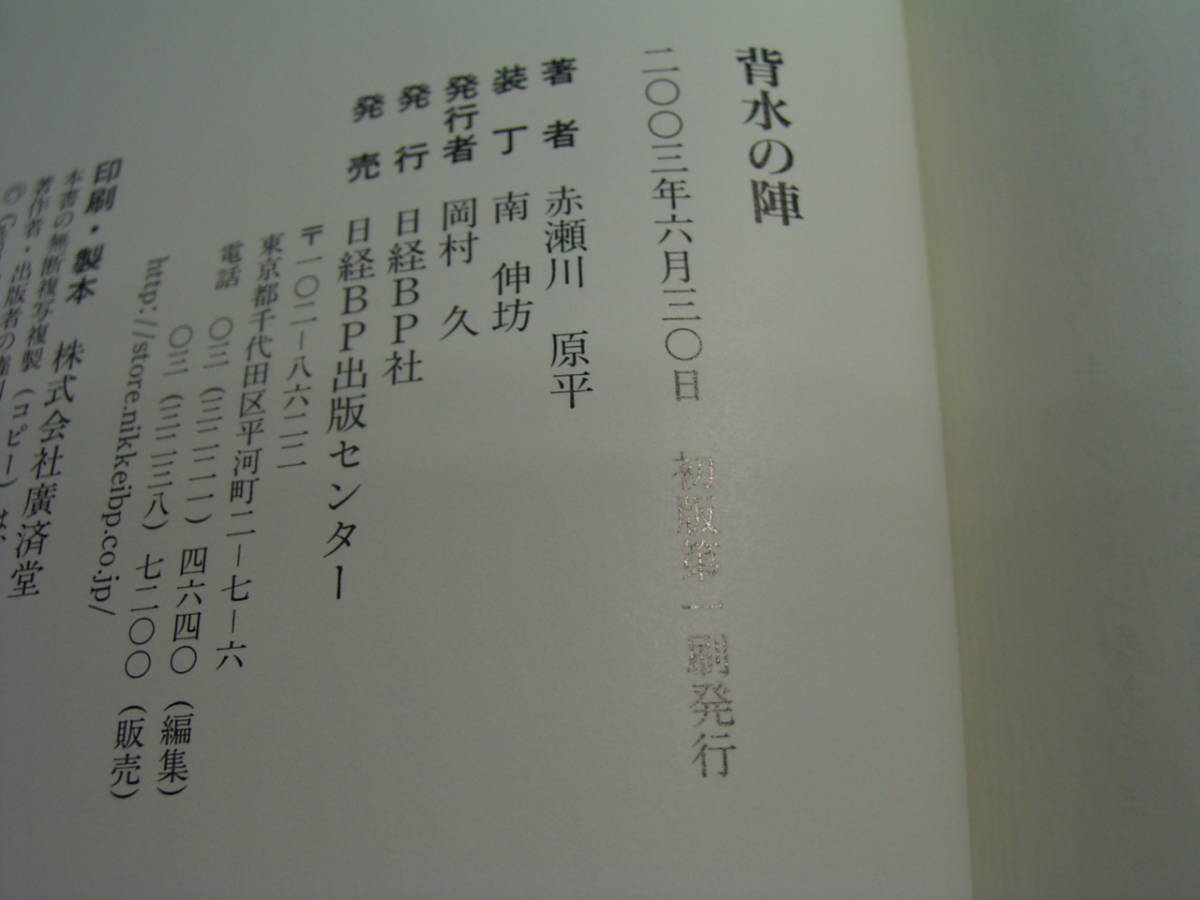 背水の陣
二〇〇三年六月三〇日 初版第一刷発行
著者 赤瀬川 原平
装丁 南 伸坊
発行者 岡村 久
発行 日経BP社
発売 日経BP出版センター
〒一〇二―八六二二
東京都千代田区平河町二―七―六
電話 〇三(三二二一)四六四〇(編集)
〇三(三二三八)七二〇〇(販売)
http://store.nikkeibp.co.jp/
印刷・製本 株式会社廣済堂
本書の無断複写複製(コピー)は、
著作者・出版者の権利